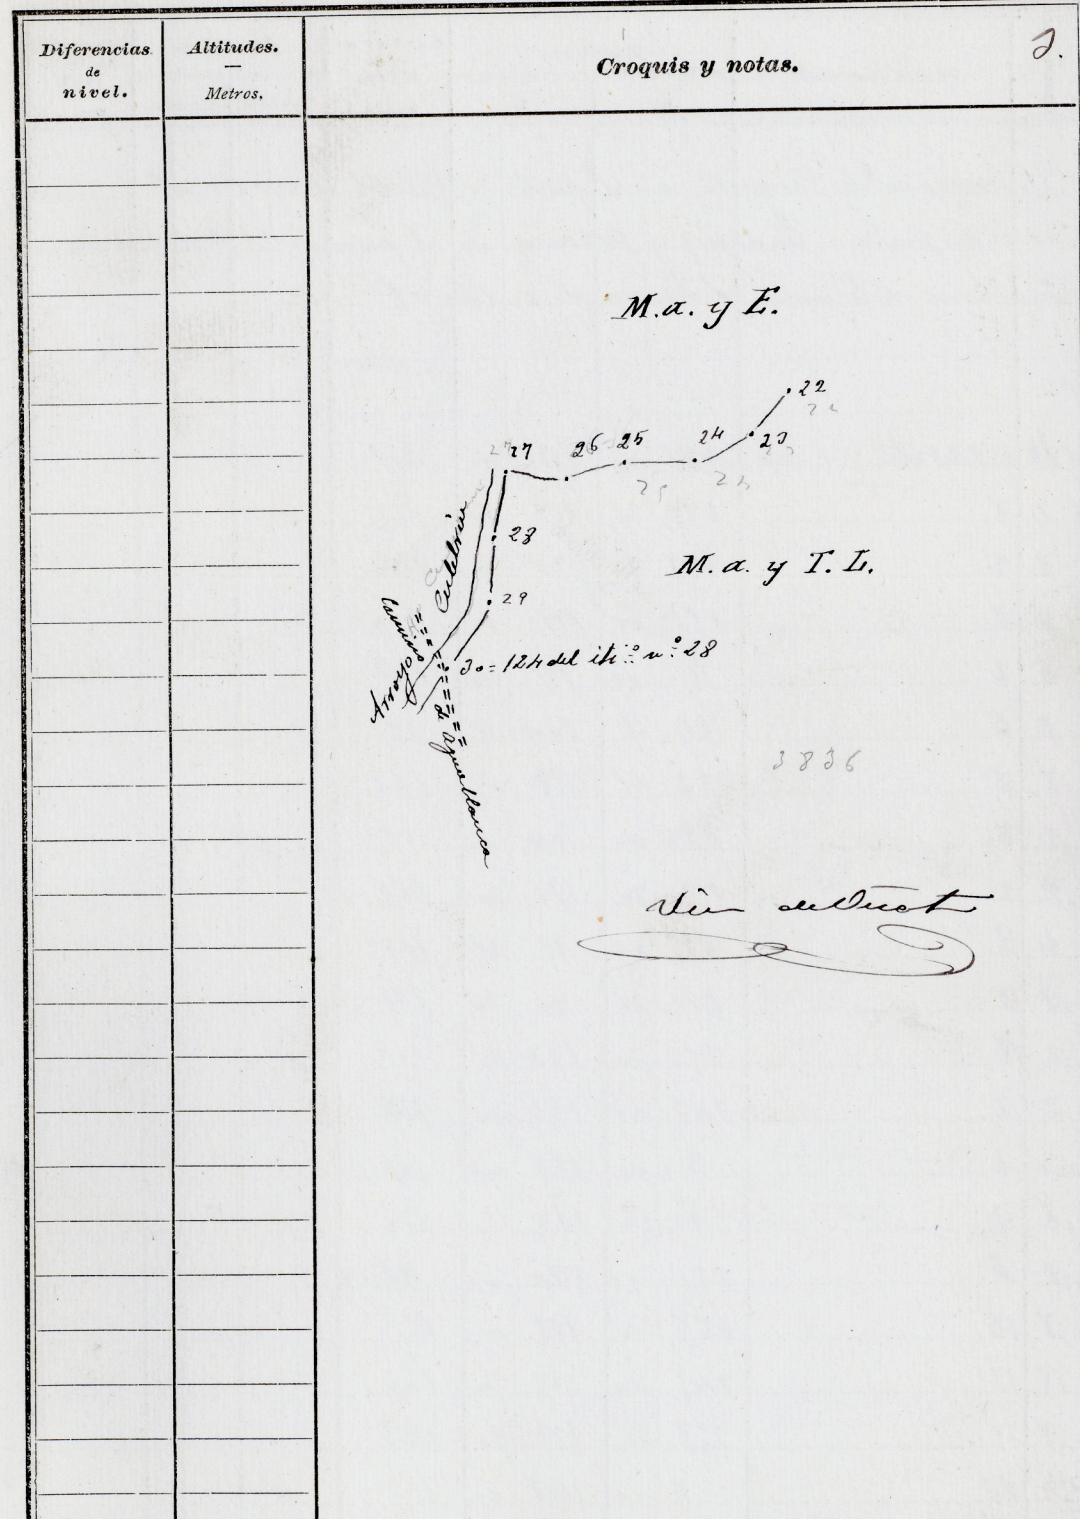 Diferencias
de
nivel.
Altitudes.
Metros.
Croquis y notas.
M. a. y E.
22
23
24
25
26
27
28
29
30 = 124 del iti:º nº 28
M. a. y T. L.
Arroyo Culebrin
Camino de Aguablanca
3836